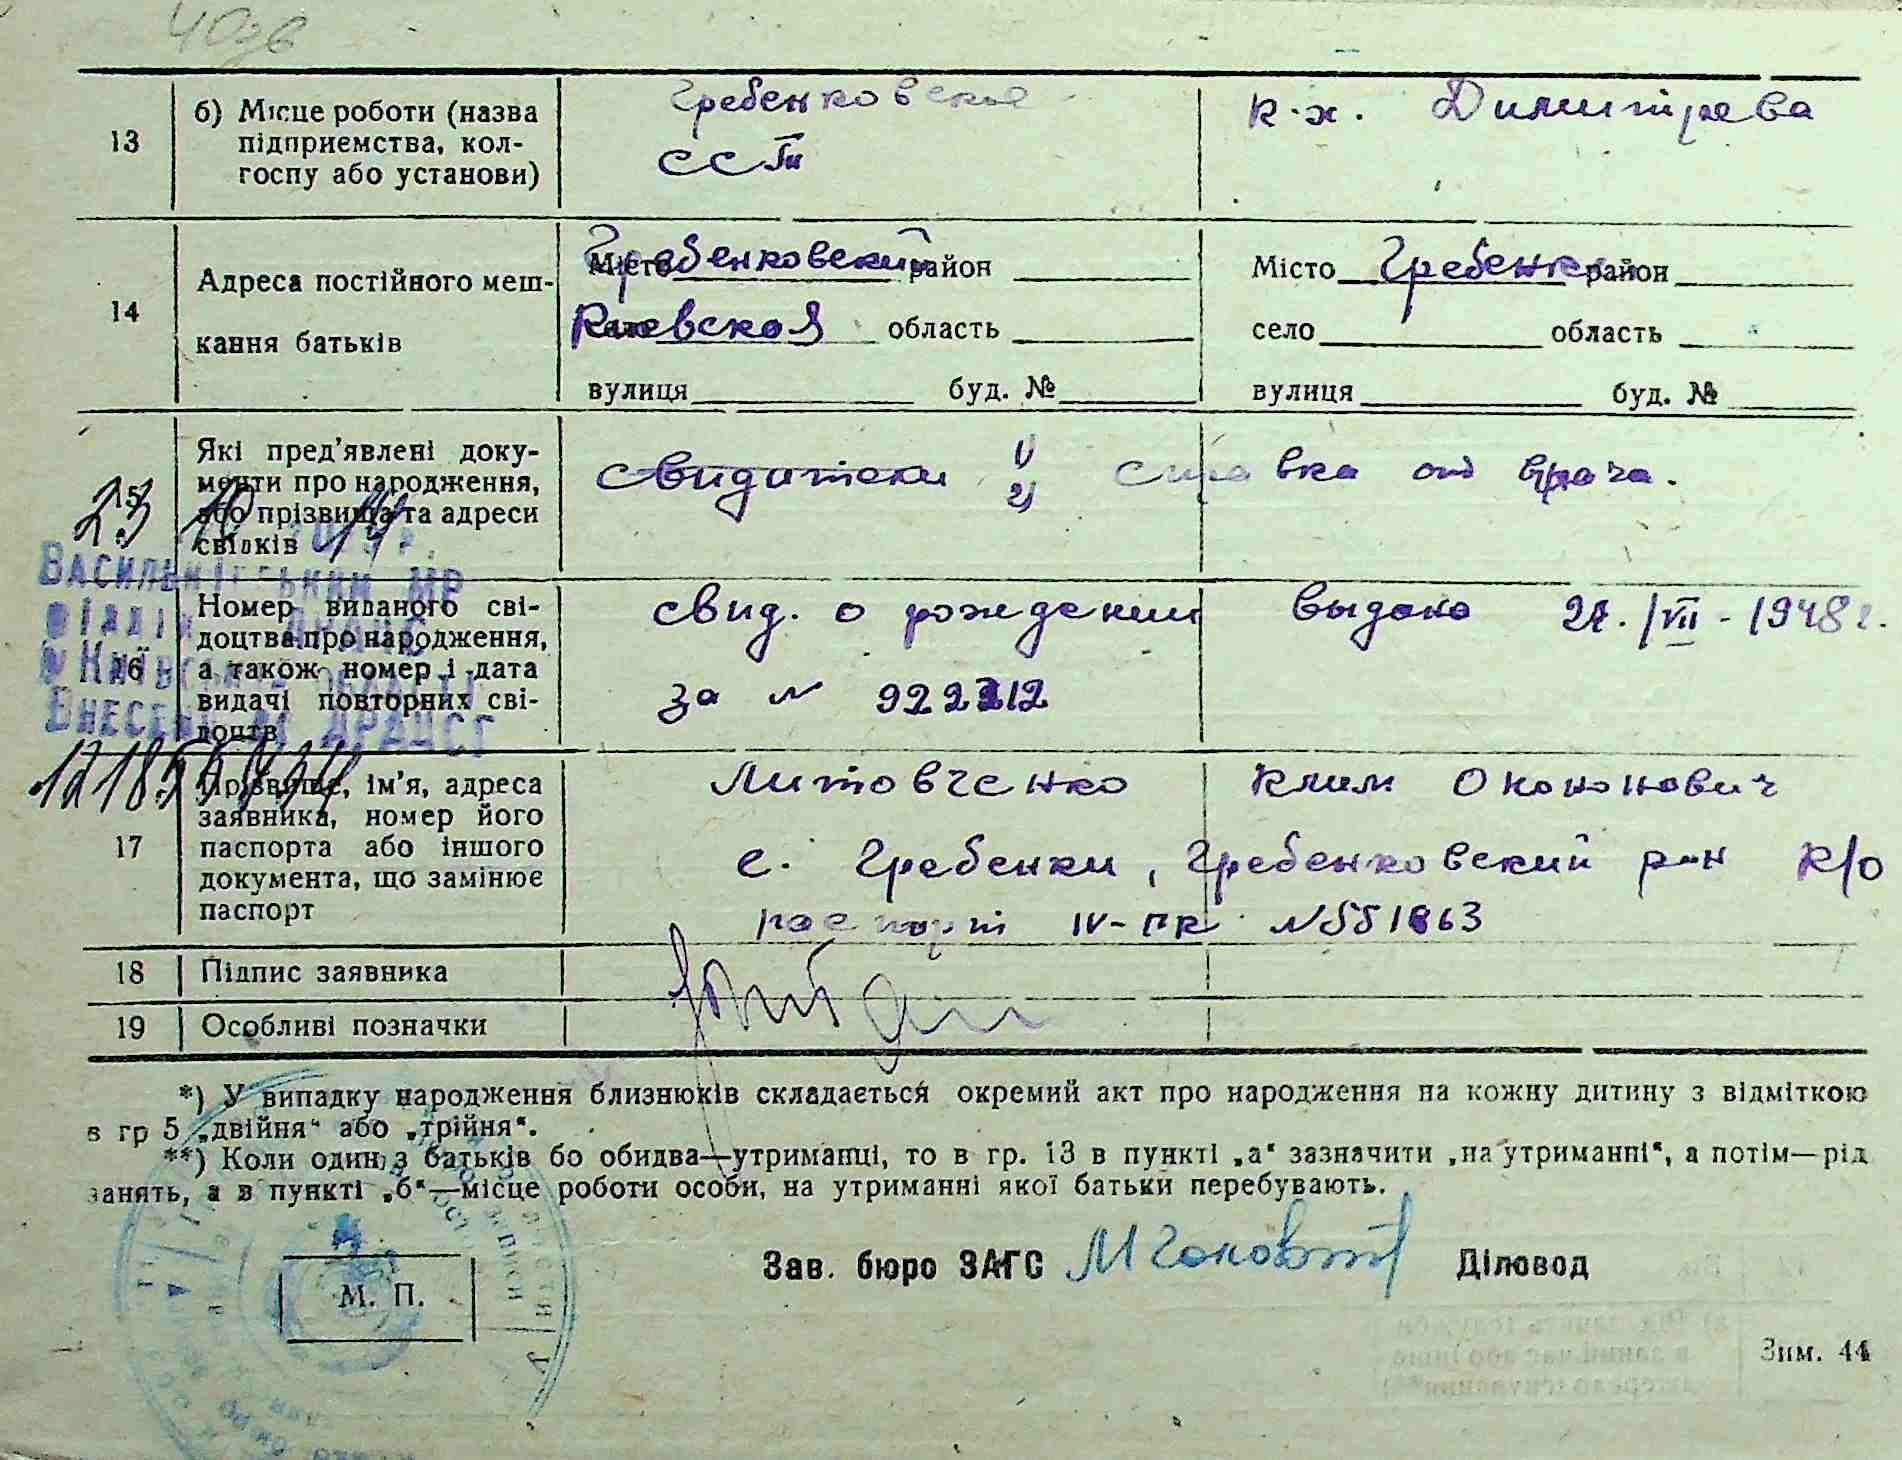 13
б) Місце роботи (назва підприємства, колгоспу або установи)
Гребенковская
к-х. Димитрева
14
Адреса постійного мешкання батьків
Гребенковский
Місто район
Киевской
село область
вулиця буд. №
Місто Гребенки район
село область
вулиця буд. №
15
Які пред'явлені документи про народження, або прізвища та адреси свідків
свидители 1) 2) справка от врача.
23 10
Васильківський МР
відділ ДРАЦС
в Київській області
Внесено ДРАЦСГ
16
Номер виданого свідоцтва про народження, а також номер і дата видачі повторних свідоцтв
свид. о рождении выдано 27./VII-1948г.
за N
17
Прізвище, ім'я, адреса заявника, номер його паспорта або іншого документа, що замінює паспорт
Литовченко Клим
с. Гребенки, Гребенковский р-н К/о
паспорт IV-ПК N551863
18 Підпис заявника
19 Особливі позначки
*) У випадку народження близнюків складається окремий акт про народження на кожну дитину з відміткою
в гр 5 „двійня“ або „трійня“.
**) Коли один з батьків бо обидва—утриманці, то в гр. 13 в пункті „а“ зазначити „на утриманні“, а потім—рід
занять, а в пункті „б“—місце роботи особи, на утриманні якої батьки перебувають.
М. П.
Зав. бюро ЗАГС
Діловод
Зим. 44